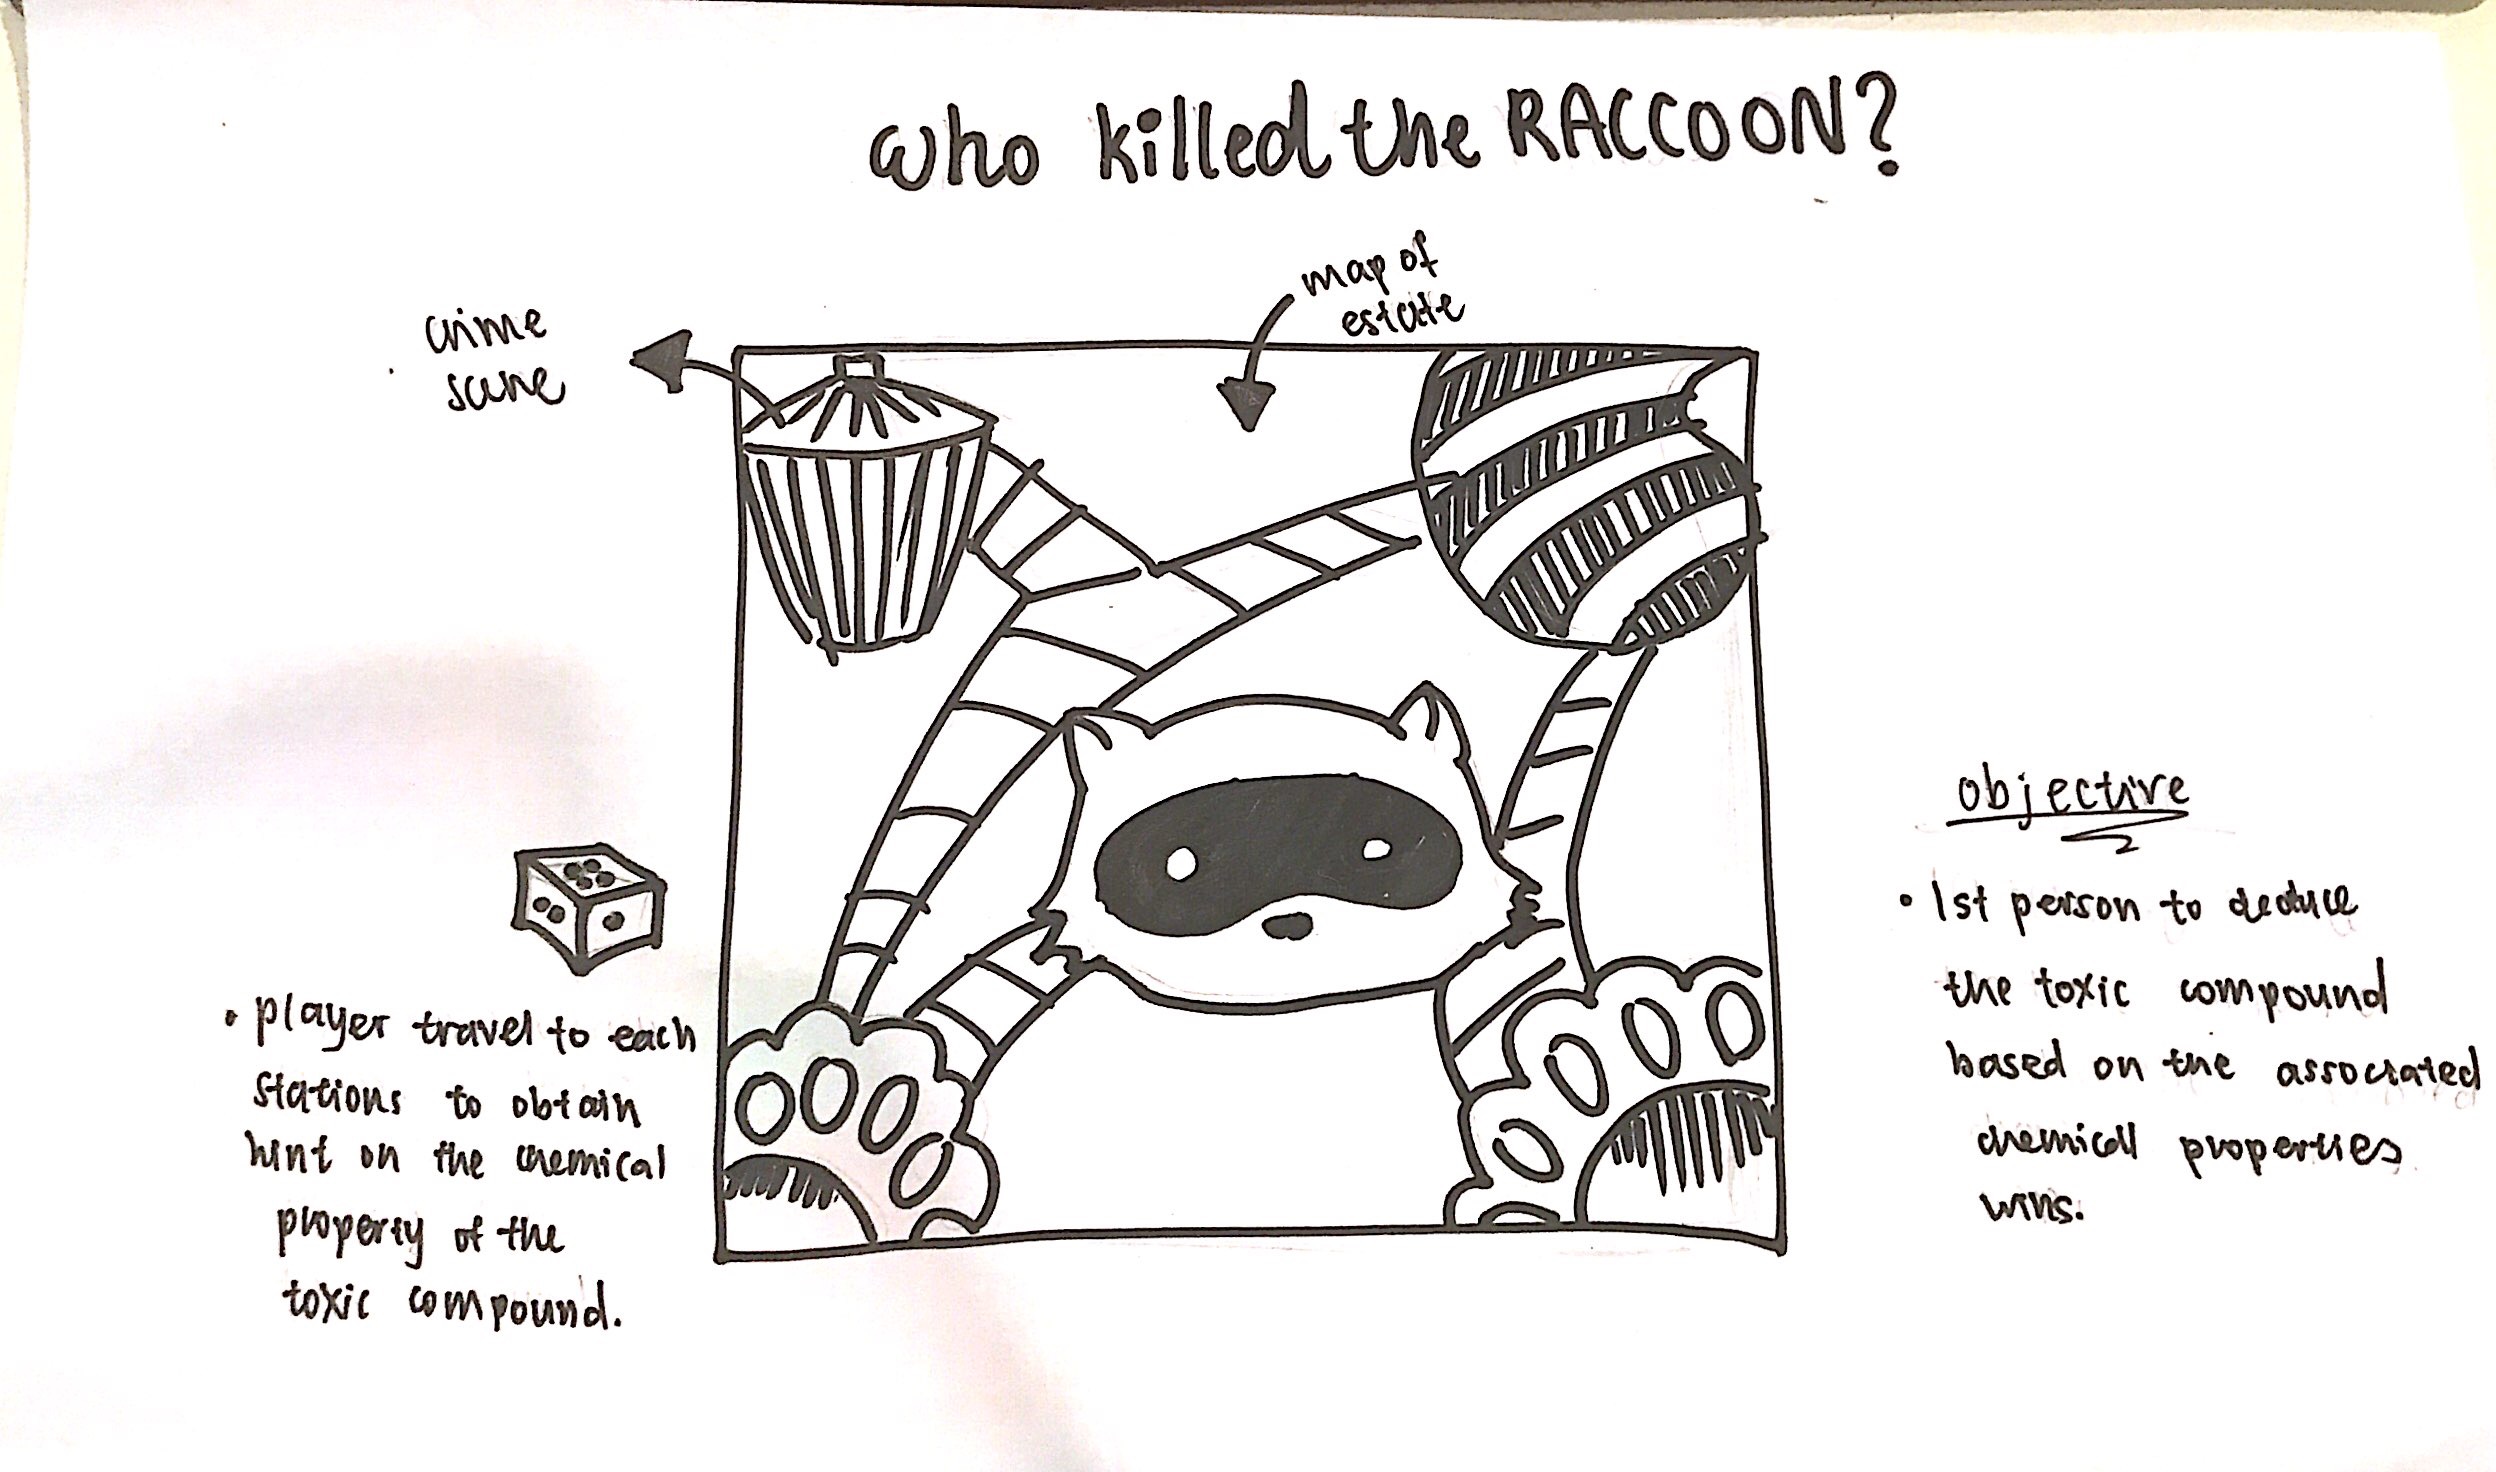 who killed the RACCOON?
crime
scene
map of
estate
• player travel to each
stations to obtain
hint on the chemical
property of the
toxic compound.
objective
• 1st person to deduce
the toxic compound
based on the associated
chemical properties
wins.